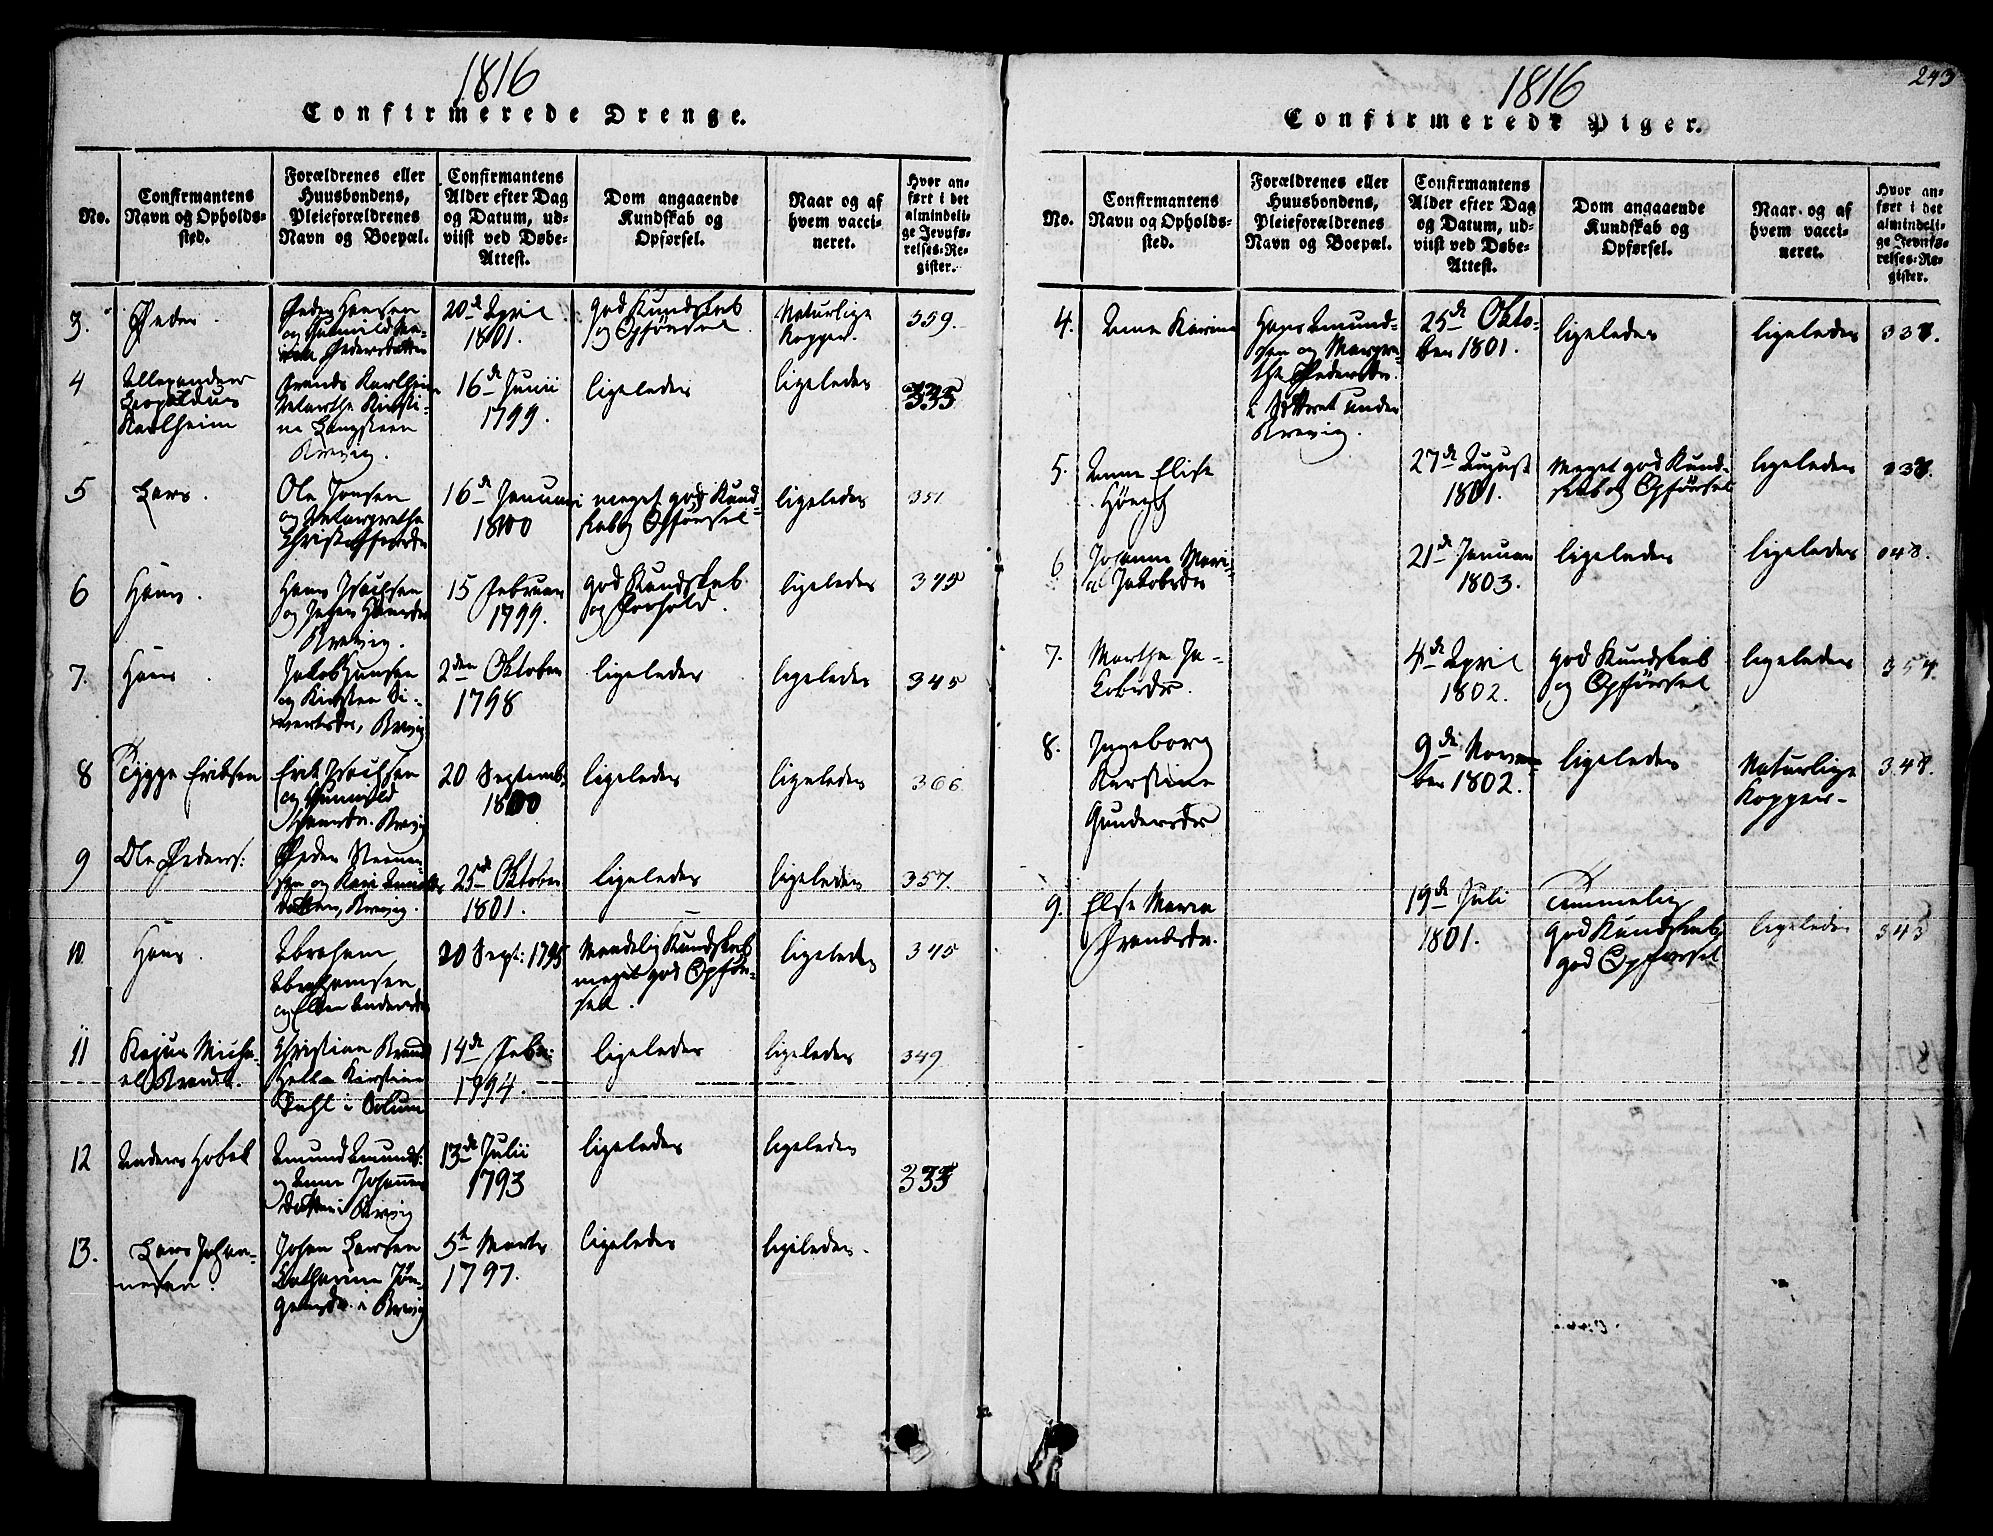 1816
Confirmerede Drenge.
No.
Confirmantens
Navn og Opholds-
sted.
Forældrenes eller
Huusbondens,
Pleieforældrenes
Navn og Boepæl.
Confirmantens
Alder efter Dag
og Datum, ud-
viist ved Døbe-
Attest.
Dom angaaende
Kundskab og
Opførsel.
Naar og af
hvem vacci-
neret.
Hvor an-
ført i det
almindeli-
ge Jevnfø-
relses-Re-
gister.
3.
Peder.
Peder Hansen
og Gunnild
Pedersdatter
20de April
1801.
god Kundskab
og Opførsel.
Naturlige
Kopper.
359.
4
Allexander
Leopoldus
Karlheim
Frands Karlheim
Marthe Kirsti-
ne Langsteen
Brevig.
16de Junii
1799.
ligeledes
ligeledes
335
5
Lars.
Ole Jensen
og Margrethe
Christoffersdr
16de Januari
1800
meget god Kund-
skab og Opførsel
ligeledes
351
6
Hans.
Hans Isachsen
og
Brevig.
15 Februar
1799.
god Kundskab
og Forhold.
ligeledes
345
7.
Hans
Jakob Hansen
og Kirsten Si-
vertsdr, Brevig
2den Oktober
1798
ligeledes
ligeledes
345
8
Tygge Eriksen
Erik Isachsen
og Gunnild
Brevig
20 Septemb:
1800
ligeledes
ligeledes
366
9
Ole Peders:
Peder
og Kari
Brevig.
25de Oktober
1801.
ligeledes
ligeledes
357.
10
Hans.
Abraham
Abrahamsen
og Ellen Andersdr
20 Sept: 1795
Maadelig Kundskab
meget god Opfør-
sel.
ligeledes
345
11
Kajus Micha-
el Brandt.
Christian Brandt
Helle Kirstine
Dahl i
14de Febr:
1794.
ligeledes
ligeledes
349
12
Anders Hobek
Amund Amunds:
og Anne Johannes
datter i Brevig
13de Julii
1793
ligeledes
ligeledes
335
13.
Lars Johan-
nesen.
Johan Larsen
Catharine Jør-
gensdr. i Brevig
5te Marts
1797.
ligeledes
ligeledes.
1816
243
Confirmerede Piger.
No.
Confirmantens
Navn og Opholds-
sted.
Forældrenes eller
Huusbondens,
Pleieforældrenes
Navn og Boepæl.
Confirmantens
Alder efter Dag
og Datum, ud-
viist ved Døbe-
Attest.
Dom angaaende
Kundskab og
Opførsel.
Naar og af
hvem vacci-
neret.
Hvor an-
ført i det
almindeli-
ge Jevnfø-
relses-Re-
gister.
4.
Anne Karine
Hans Amund-
sen og Margre-
the Pedersdr.
i under
Brevig.
25de Okto-
ber 1801.
ligeledes
ligeledes
338.
5.
Anne Elise
Høegh
27de August
1801.
Meget god Kund-
skab og Opførsel
ligeledes
338.
6
Johanne Mari-
a Jakobsdr
21de Januar
1803.
ligeledes
ligeledes
348.
7.
Marthe Ja-
kobsdr.
4de April
1802.
god Kundskab
og Opførsel
ligeledes
354.
8.
Ingeborg
Kirstine
Gundersdr
9de Novem-
ber 1802.
ligeledes
Naturlige
Kopper-
348.
9.
Else Maria
Frandsdr.
19de Juli
1801.
Temmelig
god Kundskab,
god Opførsel
ligeledes
343